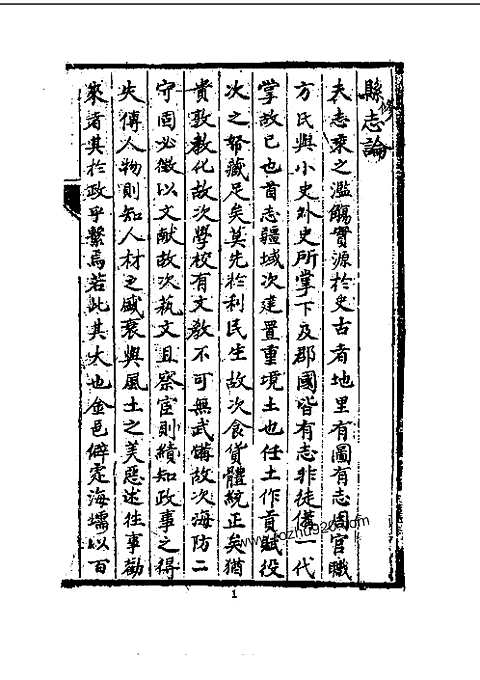 修縣志論
夫志乘之濫觴實源於史古者地里有圖有志周官職
方氏與小史外史所掌下及郡國皆有志非徒備一代
掌故已也首志疆域次建置重境土也任土作貢賦役
次之帑藏足矣莫先於利民生故次食貨體統正矣猶
貴敦教化故次學校有文教不可無武備故次海防二
守固必徵以文獻故次秇文且察宦則績知政事之得
失傳人物則知人材之盛衰與風土之美惡述往事勸
來者其於政乎繫焉若此其大也金邑僻處海壖以百
www.kozhu920.com
1